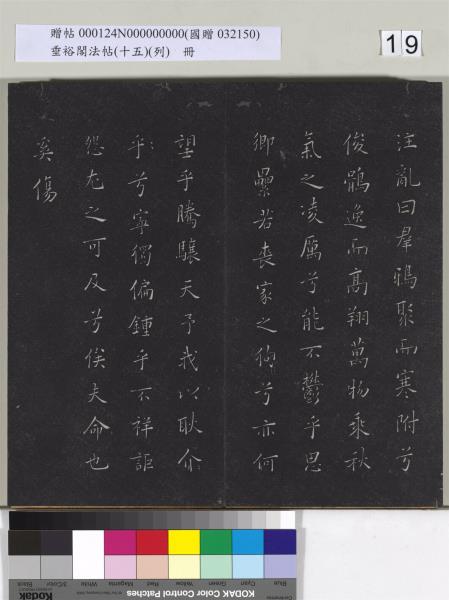 贈帖 000124N000000000(國贈 032150)
垂裕閣法帖(十五)(列) 冊
19
注亂曰羣鴉聚而寒附兮
俊鶻逸而高翔萬物乘秋
氣之凌厲兮能不鬱乎思
卿纍若喪家之狗兮亦何
望乎騰驤天予我以耿介
乎兮寧獨偏鍾乎不祥詎
怨尤之可及兮俟夫命也
奚傷
Blue
Cyan
Green
Yellow
Red
Magenta
White
3/Color
Black
Kodak
KODAK Color Control Patches